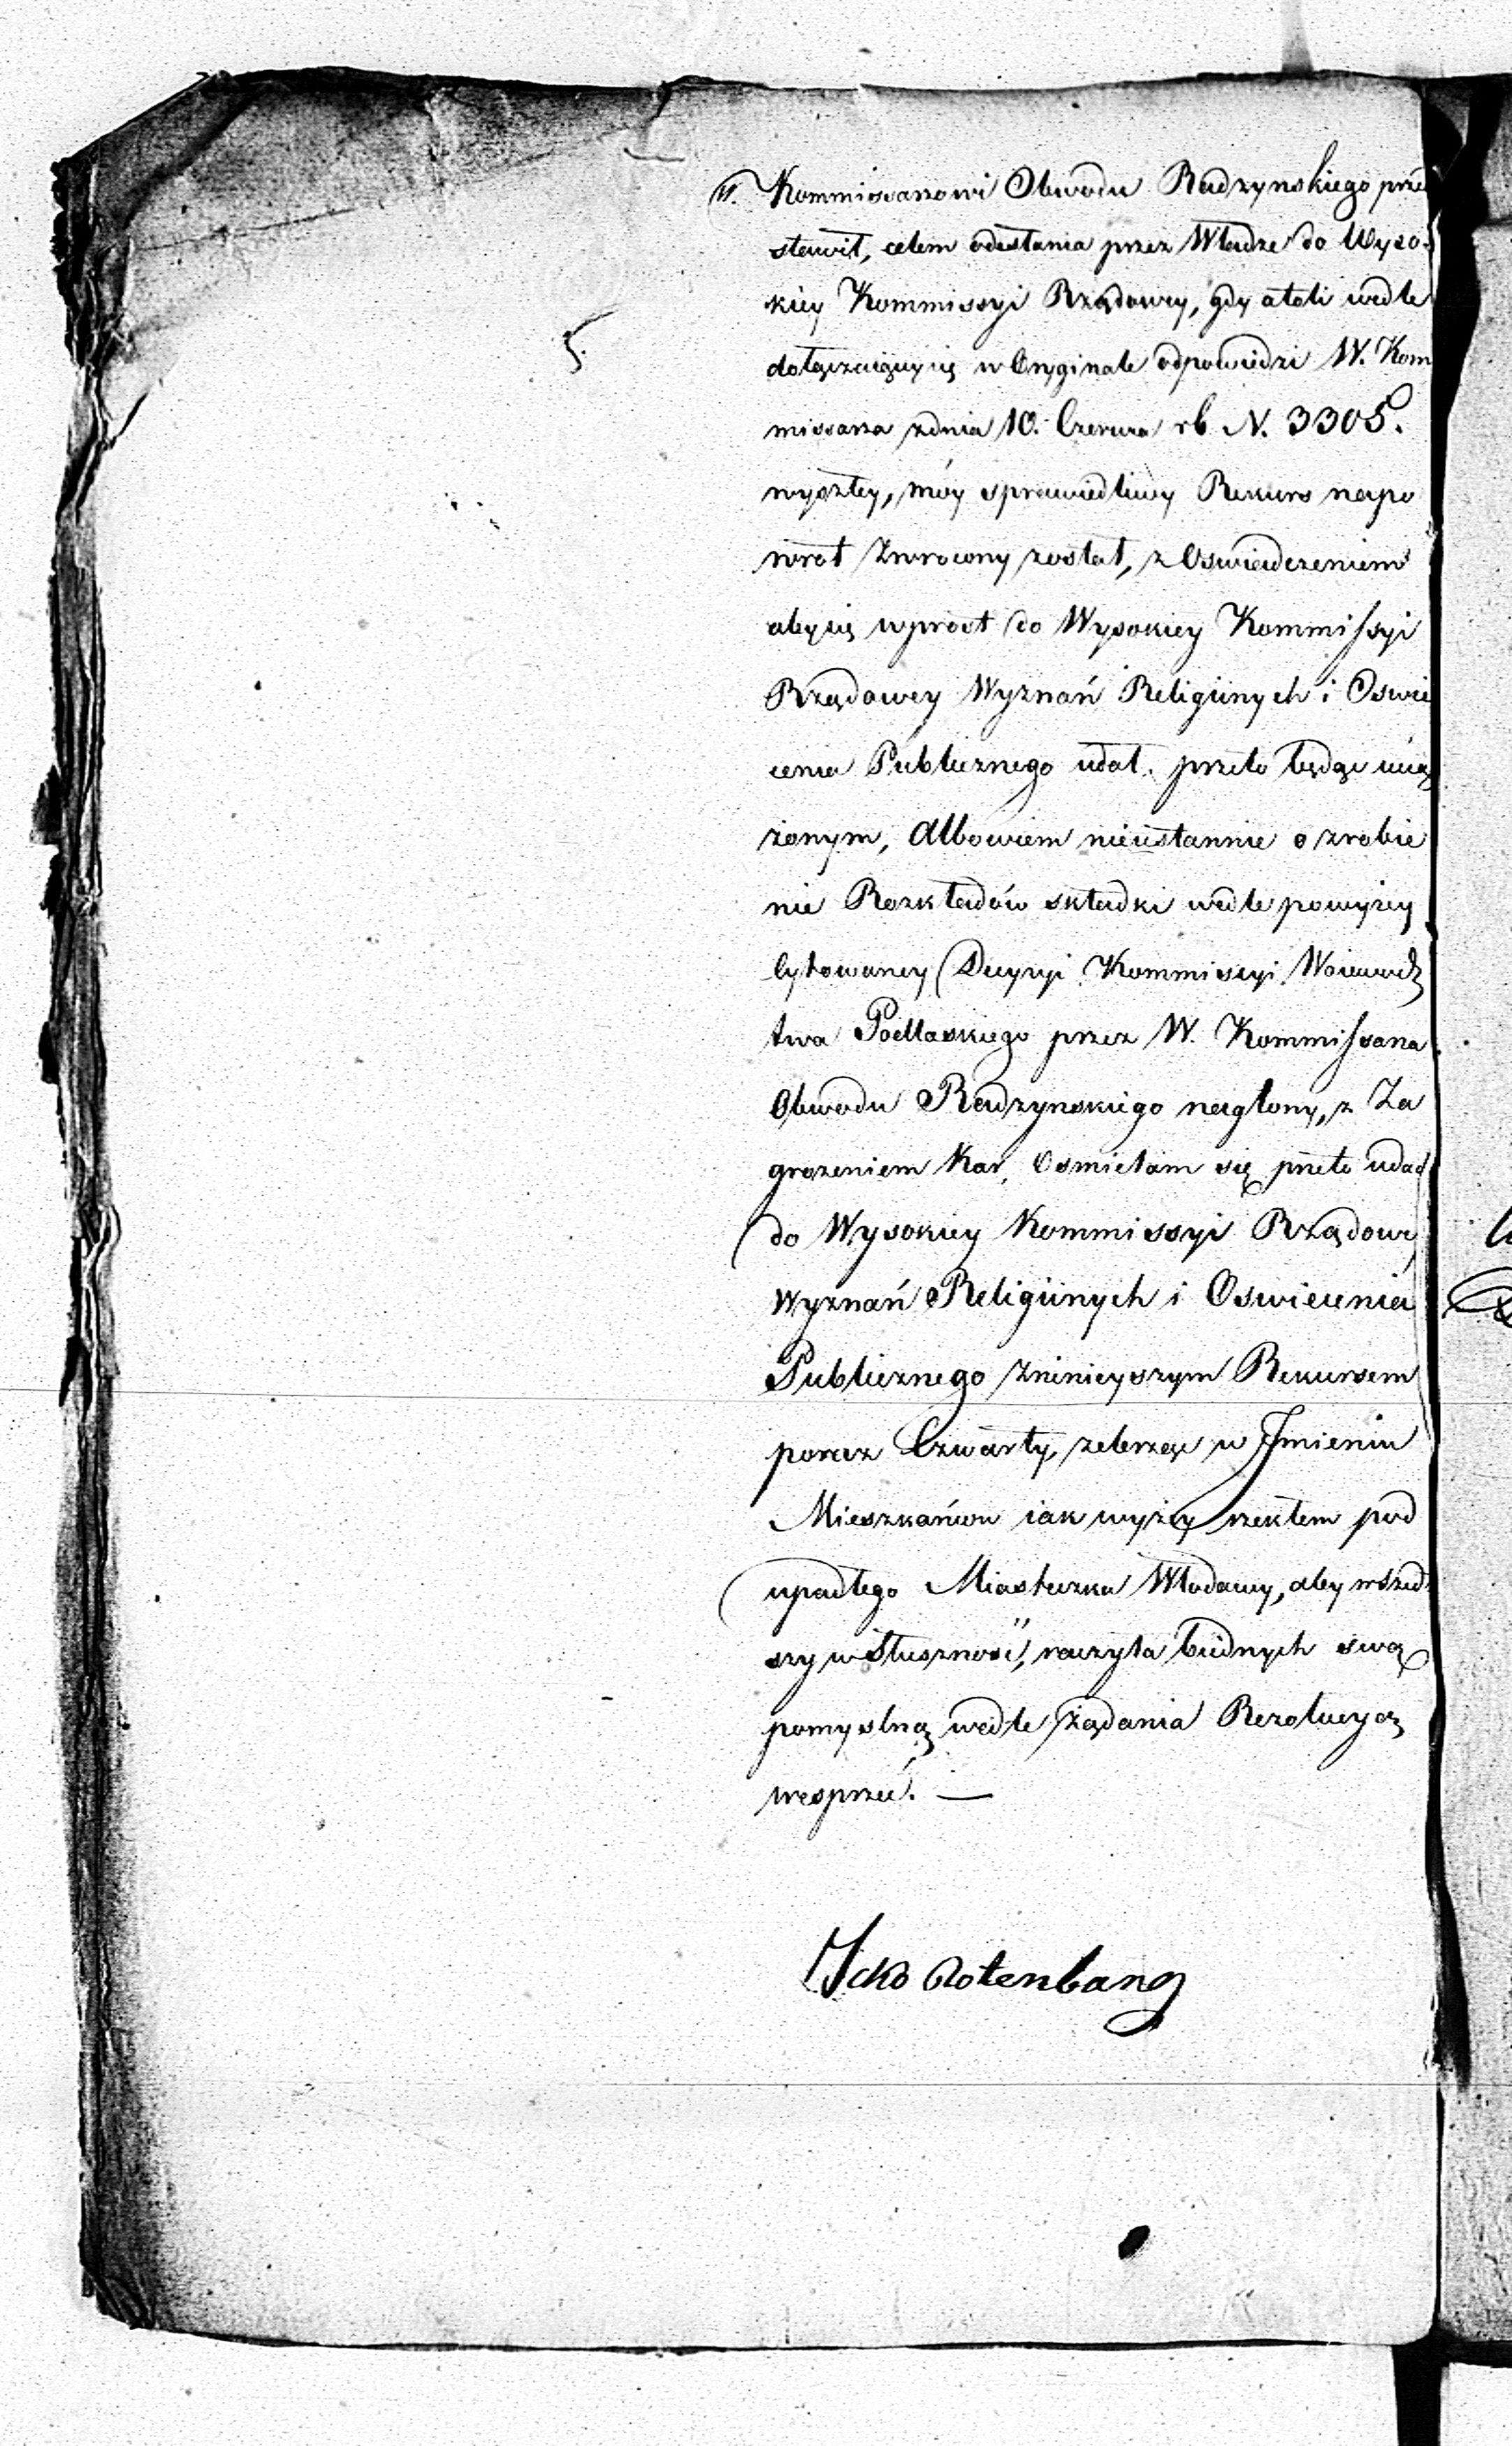 W. Kommissarzowi Obwodu Radzynskiego prze
stawił, celem odesłania przez Władze do Wyso-
kiey Kommissyi Rządowey, gdy atoli wedle
dołączaiącey się w Oryginale odpowiedzi W. Kom
missarza z dnia 10. Czerwca rb N. 3305.
wyszłey, móy sprawiedliwy Rekurs napo
wrot Zwrocony został, z Oswiadczeniem
abysię wprost do Wysokiey Kommissyi
Rządowey Wyznań Religiinych i Oswie
cenia Publicznego udał. przeto będąc ucią
żonym, Albowiem nieustannie o zrobie
nie Rozkładów składki wedle powyżey
Cytowaney Decyzyi Kommissyi Woiewodz
twa Podlaskiego przez W. Kommissarza
Obwodu Radzynskiego naglony, z Za
grożeniem Kar, Osmielam się przeto udać
do Wysokiey Kommissyi Rządowey
Wyznań Religiinych i Oswiecenia
Publicznego z ninieyszym Rekursem
poraz Czwarty, żebrząc w Jmieniu
Mieszkańców iak wyżey rzekłem pod
upadłego Miasteczka Włodawy, aby wszed
szy w Słuszność, raczyła biednych swą
pomyslną wedle żądania Rezolucyą
wesprzeć. —
Jcko Rotenbang